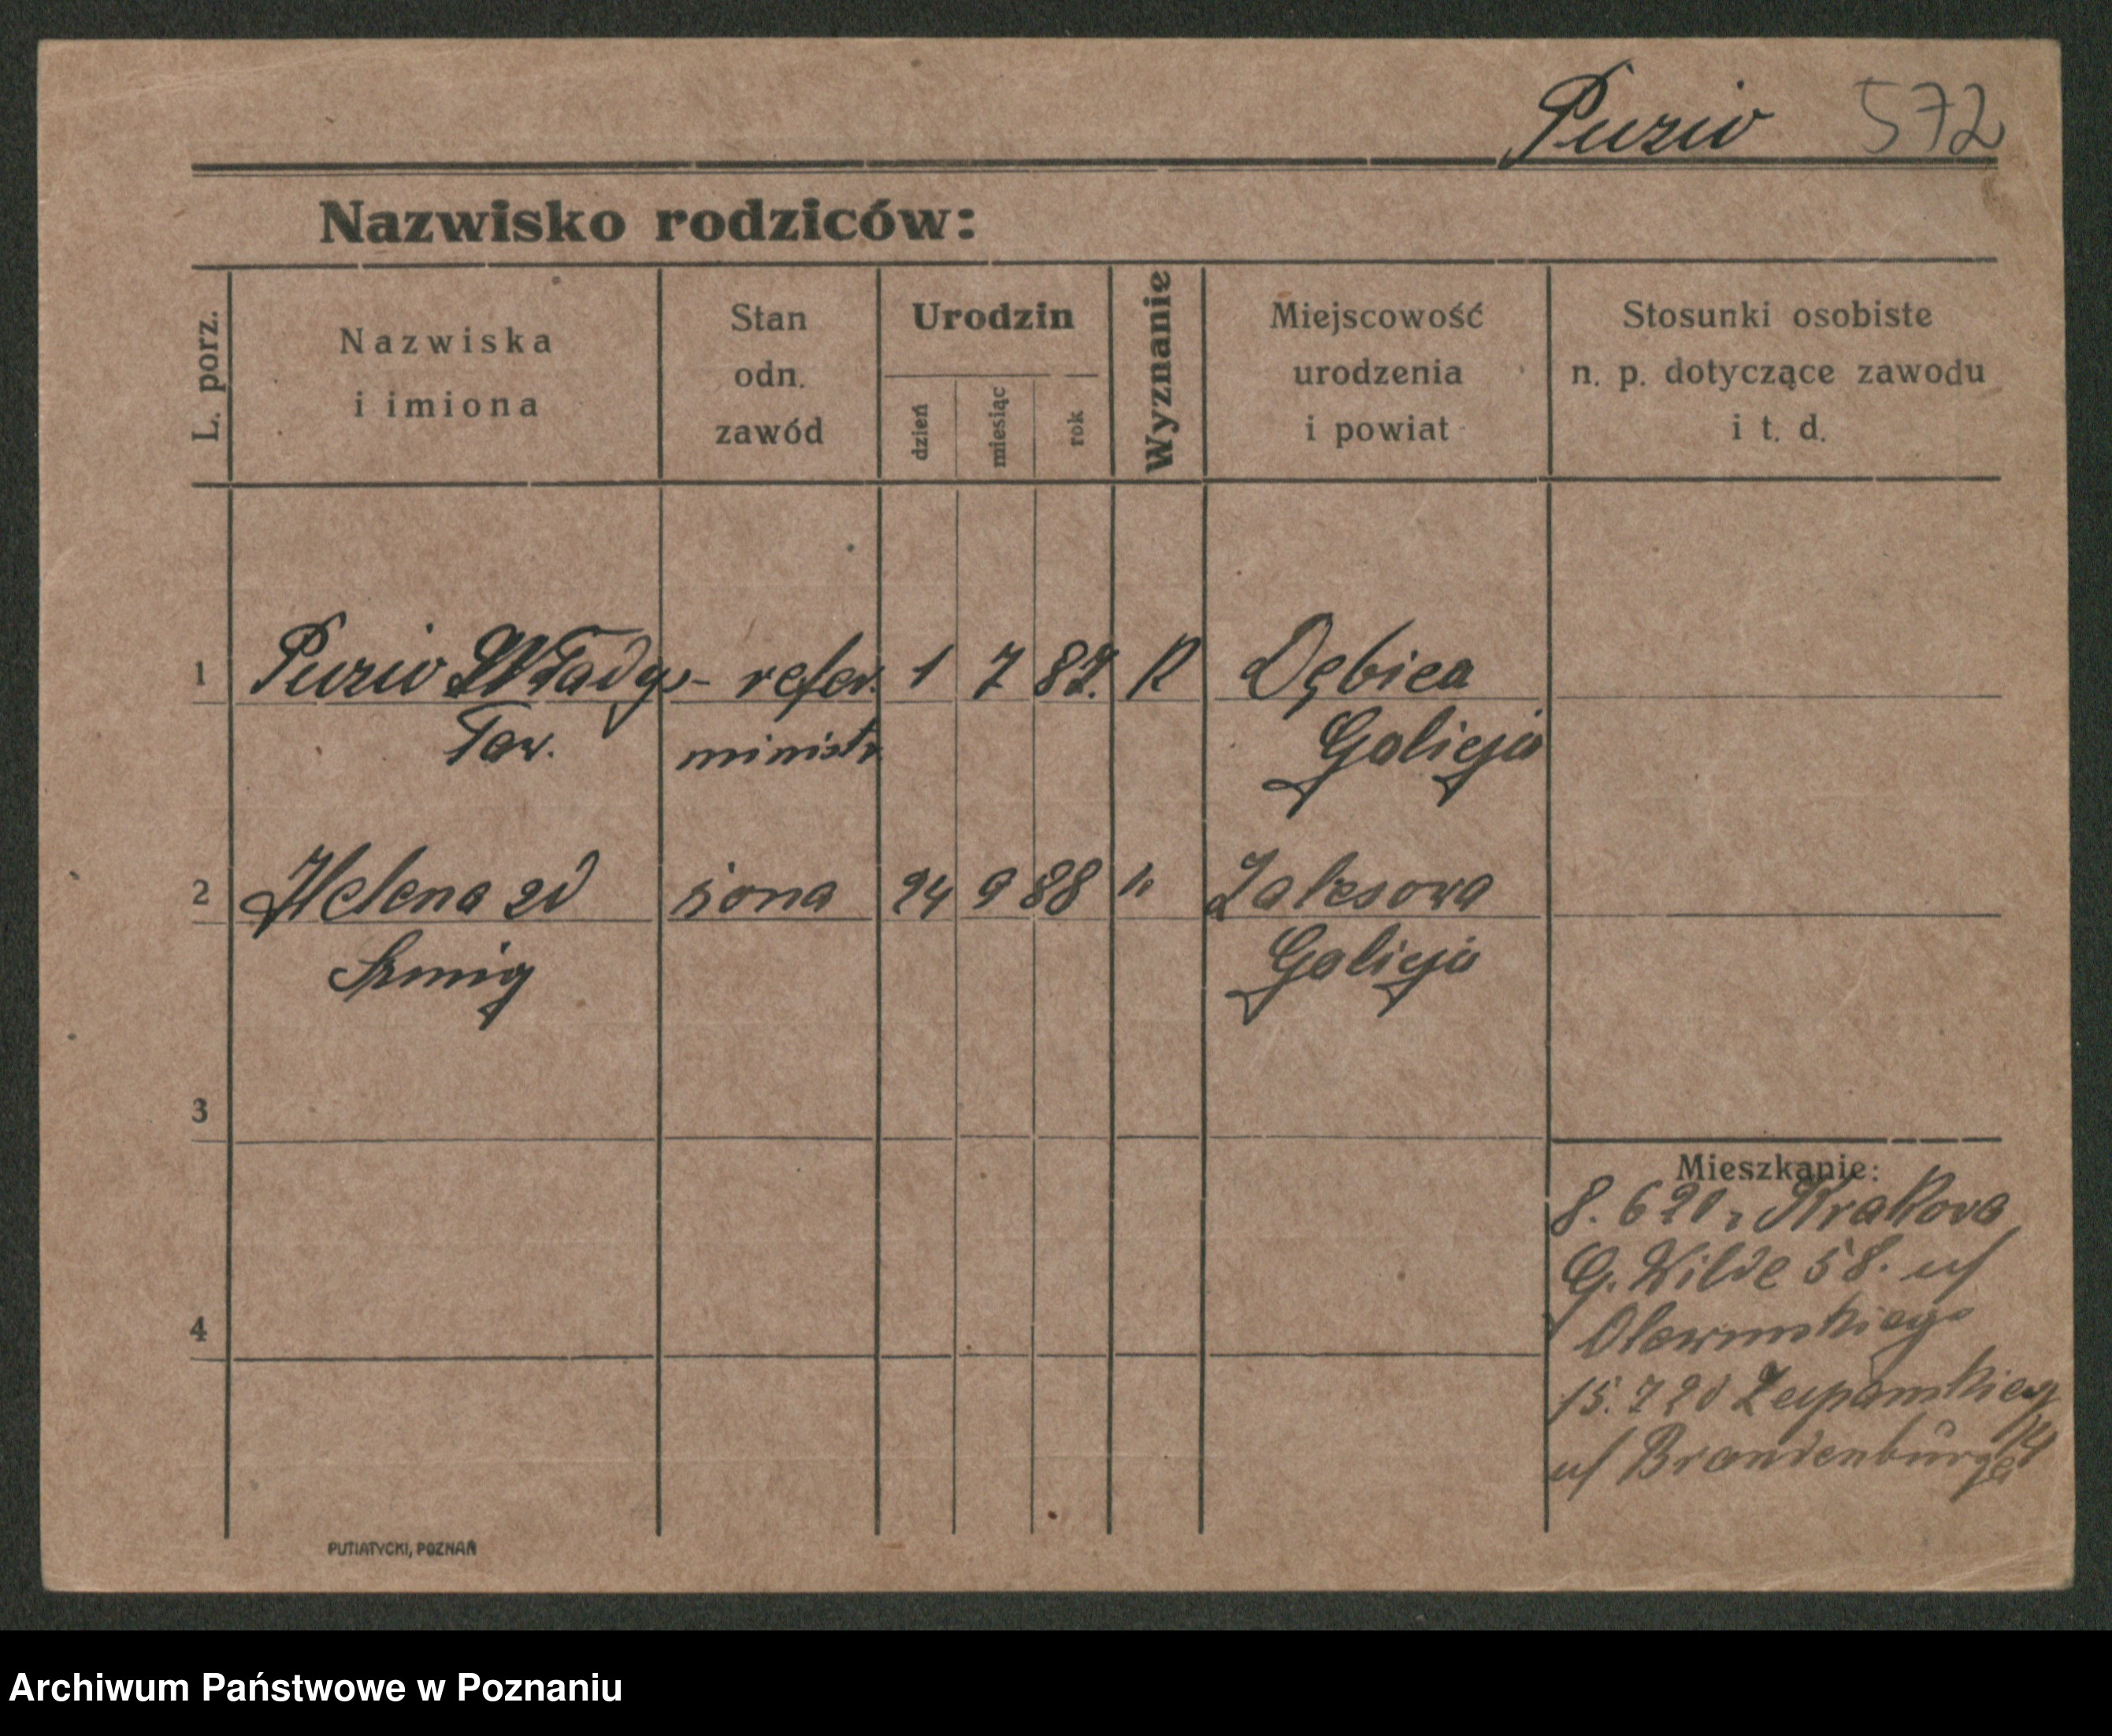 Puziw 572
Nazwisko rodziców:
L. porz.
Nazwiska
i imiona
Stan
odn.
zawód
Urodzin
dzień
miesiąc
rok
Wyznanie
Miejscowość
urodzenia
i powiat
Stosunki osobiste
n. p. dotyczące zawodu
i t. d.
1 Puzio Władys- refer. 1 7 87. R Dębica
Taw. ministr Galicja
2 Helena zd żona 24 9 88 " Zalesowa
Szmig Galicja
3
4
Mieszkanie:
8. 6 20 z Krakowa
G. Wilde 58. u/
15. 7 20 Zupańskieg
u/ Brandenburga 14
PUTIATYCKI, POZNAŃ
Archiwum Państwowe w Poznaniu